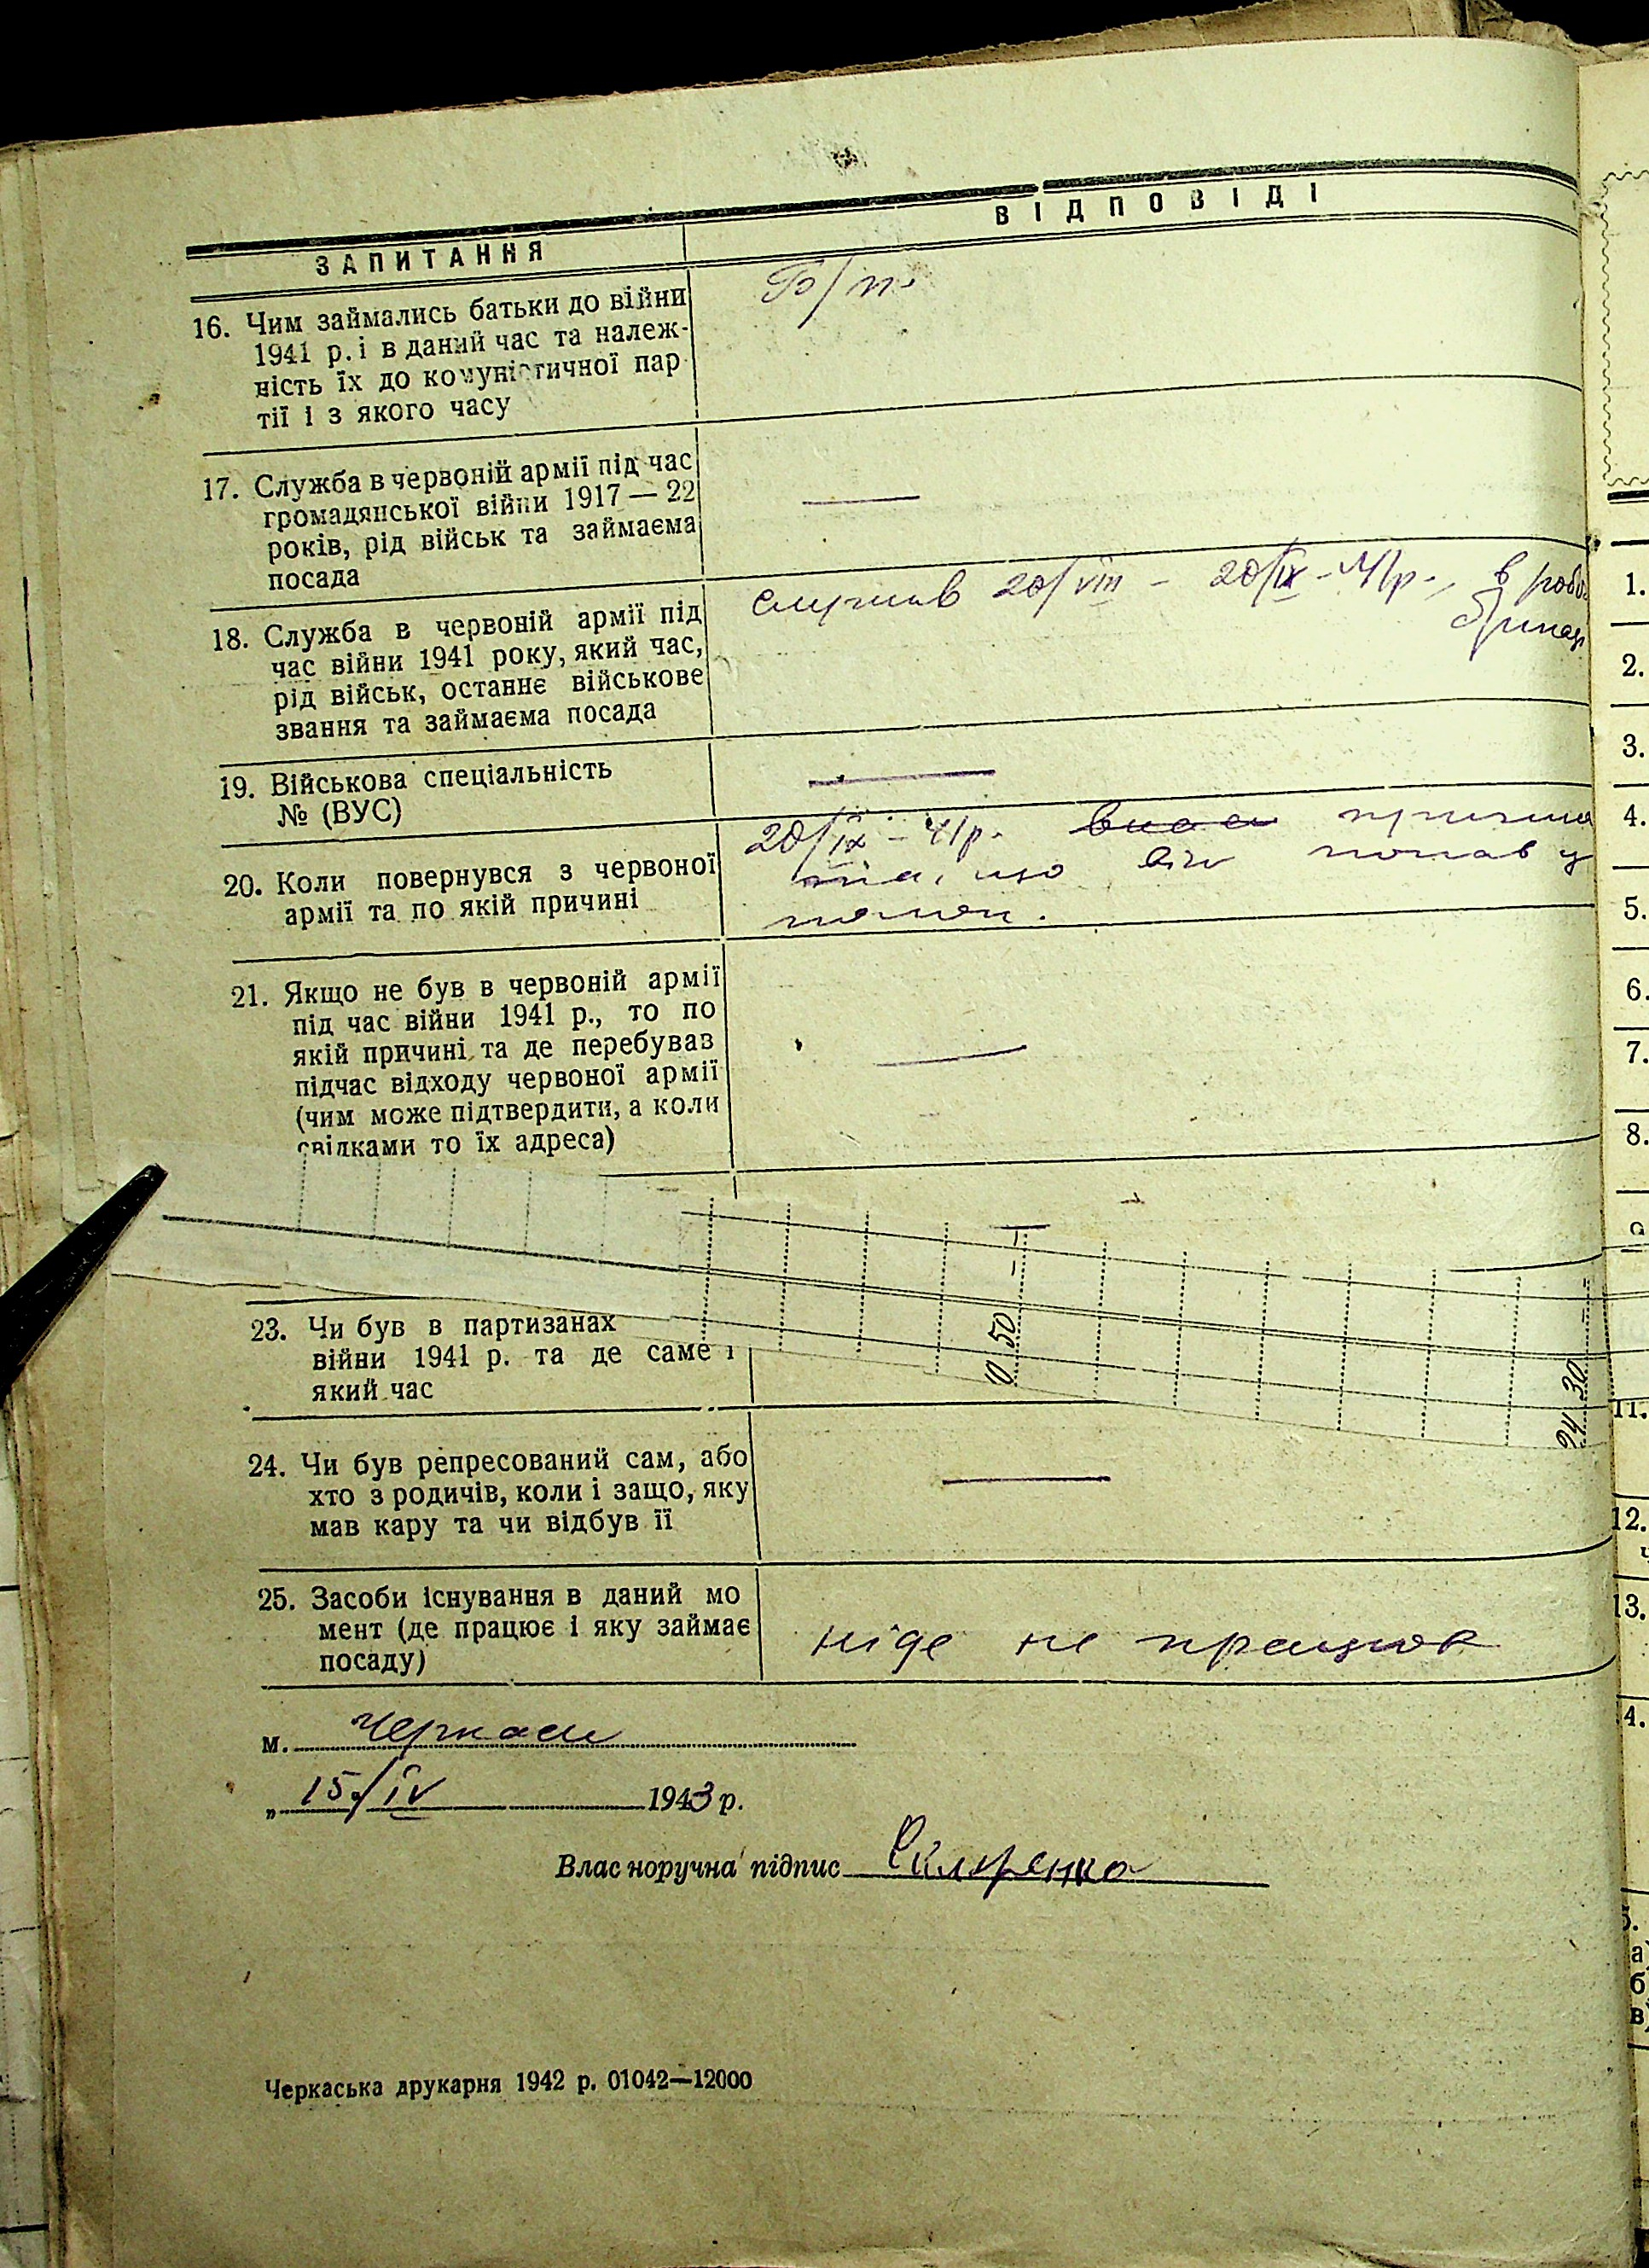 ЗАПИТАННЯ
ВІДПОВІДІ
16. Чим займались батьки до війни
1941 р. і в даний час та належ-
ність їх до комуністичної пар
тії і з якого часу
Б/п.
17. Служба в червоній армії під час
громадянської війни 1917 — 22
років, рід військ та займаєма
посада
—
18. Служба в червоній армії під
час війни 1941 року, який час,
рід військ, останнє військове
звання та займаєма посада
служив 20/VIII - 20/IX - 41р., в
19. Військова спеціальність
№ (ВУС)
—
20. Коли повернувся з червоної
армії та по якій причині
20/IX - 41р. причина
та, що він попав у
полон.
21. Якщо не був в червоній армії
під час війни 1941 р., то по
якій причині та де перебував
підчас відходу червоної армії
(чим може підтвердити, а коли
свідками то їх адреса)
—
10 50 - -
24 30 - -
23. Чи був в партизанах
війни 1941 р. та де саме і
який час
24. Чи був репресований сам, або
хто з родичів, коли і защо, яку
мав кару та чи відбув її
—
25. Засоби існування в даний мо
мент (де працює і яку займає
посаду)
ніде не працює
м. Черкаси
„ 15/IV 1943 р.
Власноручна підпис
Черкаська друкарня 1942 р. 01042—12000
1.
2.
3.
4.
5.
6.
7.
8.
9
11.
12.
13.
4.
5.
а)
б
в)